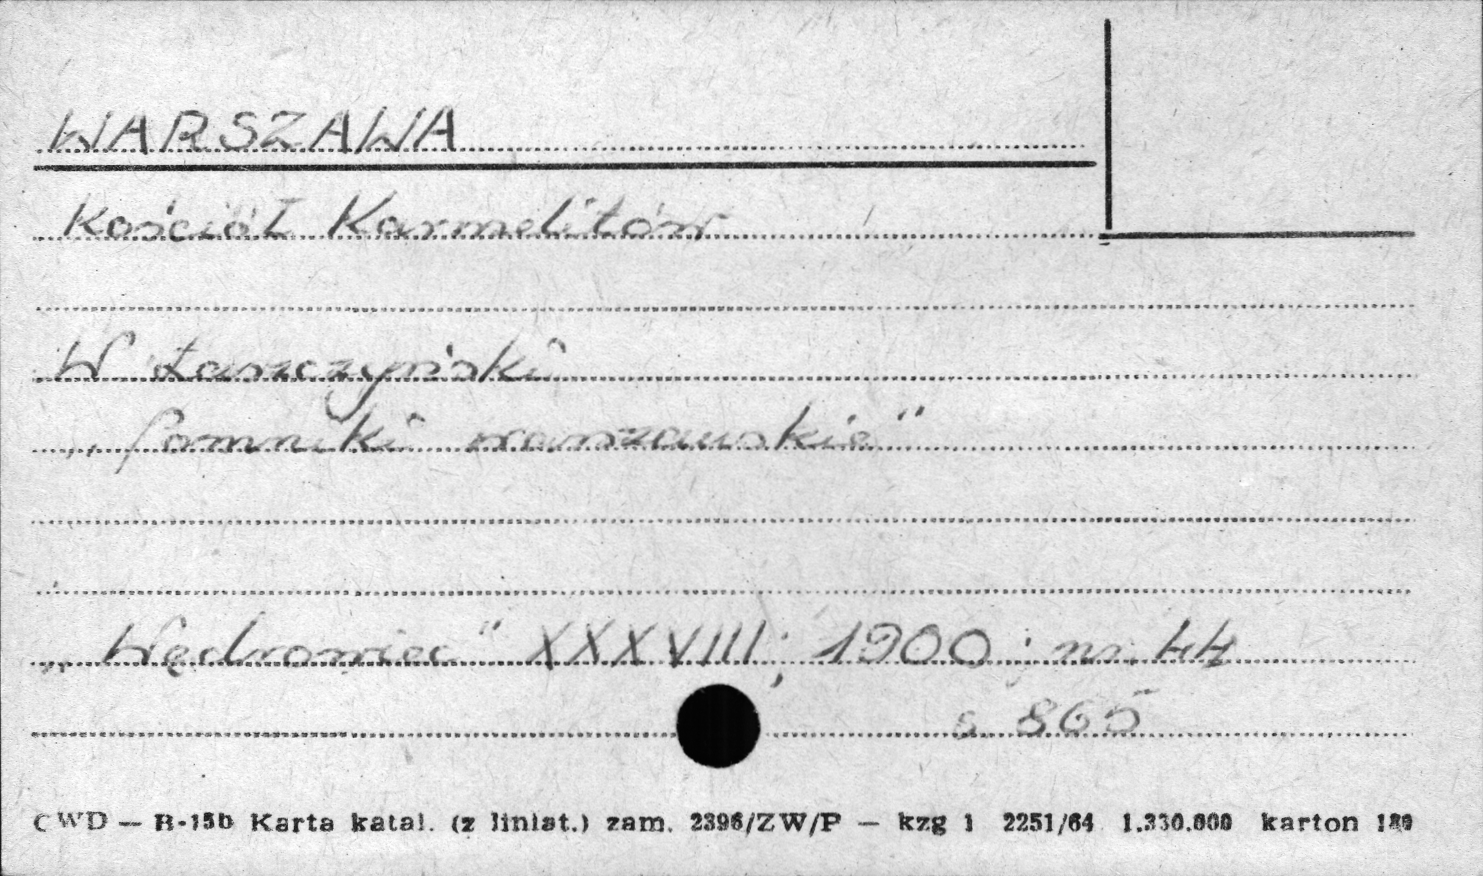 WARSZAWA
Kościół Karmelitów
W Łaszczyński
„Pomniki warszawskie"
„Wędrowiec" XXXVIII; 1900; nr. 44
s. 865
CWD — B-15b Karta katal. (z liniat.) zam. 2396/ZW/P — kzg 1 2251/64 1.330.000 karton 180